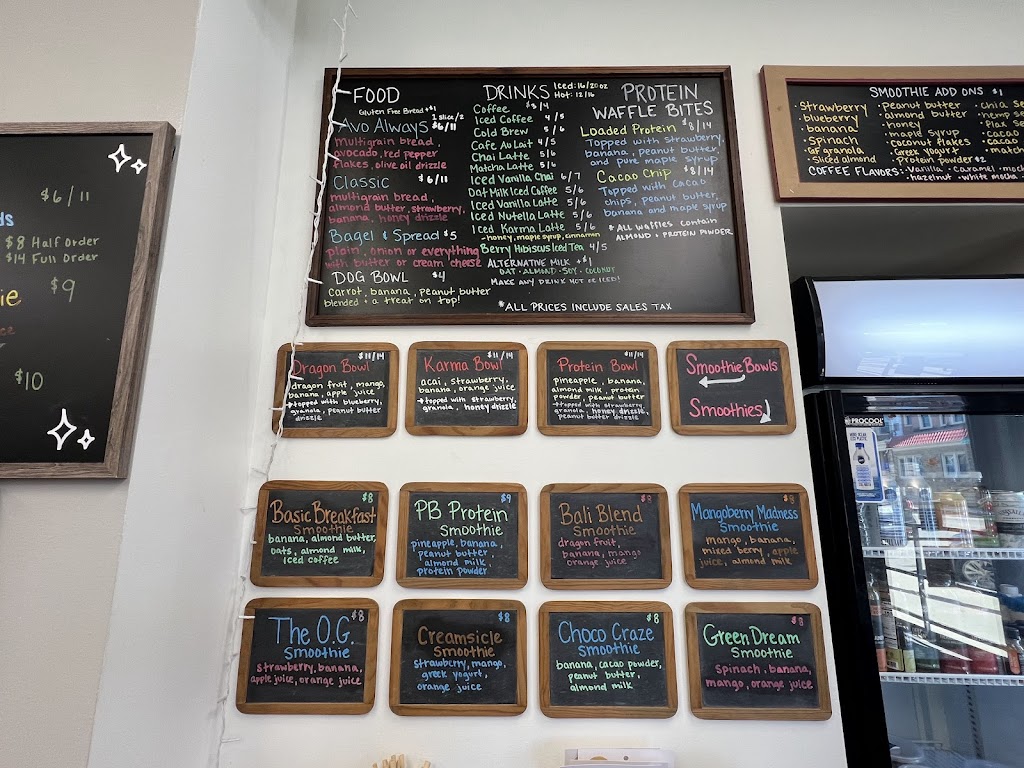 $6/11
ds
$8 Half Order
$14 Full Order
ie
$9
ce
$10
FOOD
Gluten Free Bread +$1
1 slice/2
Avo Always $6/11
multigrain bread,
avocado, red pepper
flakes, olive oil drizzle
Classic $6/11
multigrain bread,
almond butter, strawberry,
banana, honey drizzle
Bagel & Spread $5
plain, onion or everything
with butter or cream cheese
DOG BOWL $4
carrot, banana, peanut butter
blended + a treat on top!
DRINKS Iced: 16/20 oz
Hot: 12/16
Coffee $3/4
Iced Coffee 4/5
Cold Brew 5/6
Cafe Au Lait 4/5
Chai Latte 5/6
Matcha Latte 5/6
Iced Vanilla Chai 6/7
Oat Milk Iced Coffee 5/6
Iced Vanilla Latte 5/6
Iced Nutella Latte 5/6
Iced Karma Latte 5/6
-honey, maple syrup, cinnamon
Berry Hibiscus Iced Tea 4/5
ALTERNATIVE MILK +$1
OAT · ALMOND · SOY · COCONUT
MAKE ANY DRINK HOT OR ICED!
PROTEIN
WAFFLE BITES
Loaded Protein $8/14
Topped with strawberry,
banana, peanut butter,
and pure maple syrup
Cacao Chip $8/14
Topped with cacao
chips, peanut butter,
banana and maple syrup
*ALL WAFFLES CONTAIN
ALMOND + PROTEIN POWDER
*ALL PRICES INCLUDE SALES TAX
SMOOTHIE ADD ONS $1
·Strawberry
·blueberry
·banana
·Spinach
·GF granola
·Sliced almond
·peanut butter
·almond butter
·honey
·maple syrup
·coconut flakes
·Greek Yogurt
·Protein powder $2
·chia se
·hemp se
·flax se
·cacao
·cacao
·match
COFFEE FLAVORS: ·Vanilla ·caramel ·moch
·hazelnut ·white mocha
Dragon Bowl $11/14
dragon fruit, mango,
banana, apple juice
→topped with blueberry,
granola, peanut butter
drizzle
Karma Bowl $11/14
acai, strawberry,
banana, orange juice
→topped with strawberry,
granola, honey drizzle
Protein Bowl $11/14
pineapple, banana,
almond milk, protein
powder, peanut butter
→topped with strawberry,
granola, honey drizzle,
peanut butter drizzle
Smoothie Bowls
Smoothies
Basic Breakfast $8
Smoothie
banana, almond butter,
oats, almond milk,
iced coffee
PB Protein $9
Smoothie
pineapple, banana,
peanut butter,
almond milk,
protein powder
Bali Blend $8
Smoothie
dragon fruit
banana, mango
orange juice
Mangoberry Madness $8
Smoothie
mango, banana,
mixed berry, apple
juice, almond milk
The O.G. $8
Smoothie
strawberry, banana,
apple juice, orange juice
Creamsicle $8
Smoothie
strawberry, mango,
greek yogurt,
orange juice
Choco Craze $8
Smoothie
banana, cacao powder,
peanut butter,
almond milk
Green Dream $8
Smoothie
Spinach, banana,
mango, orange juice
PROCOOL